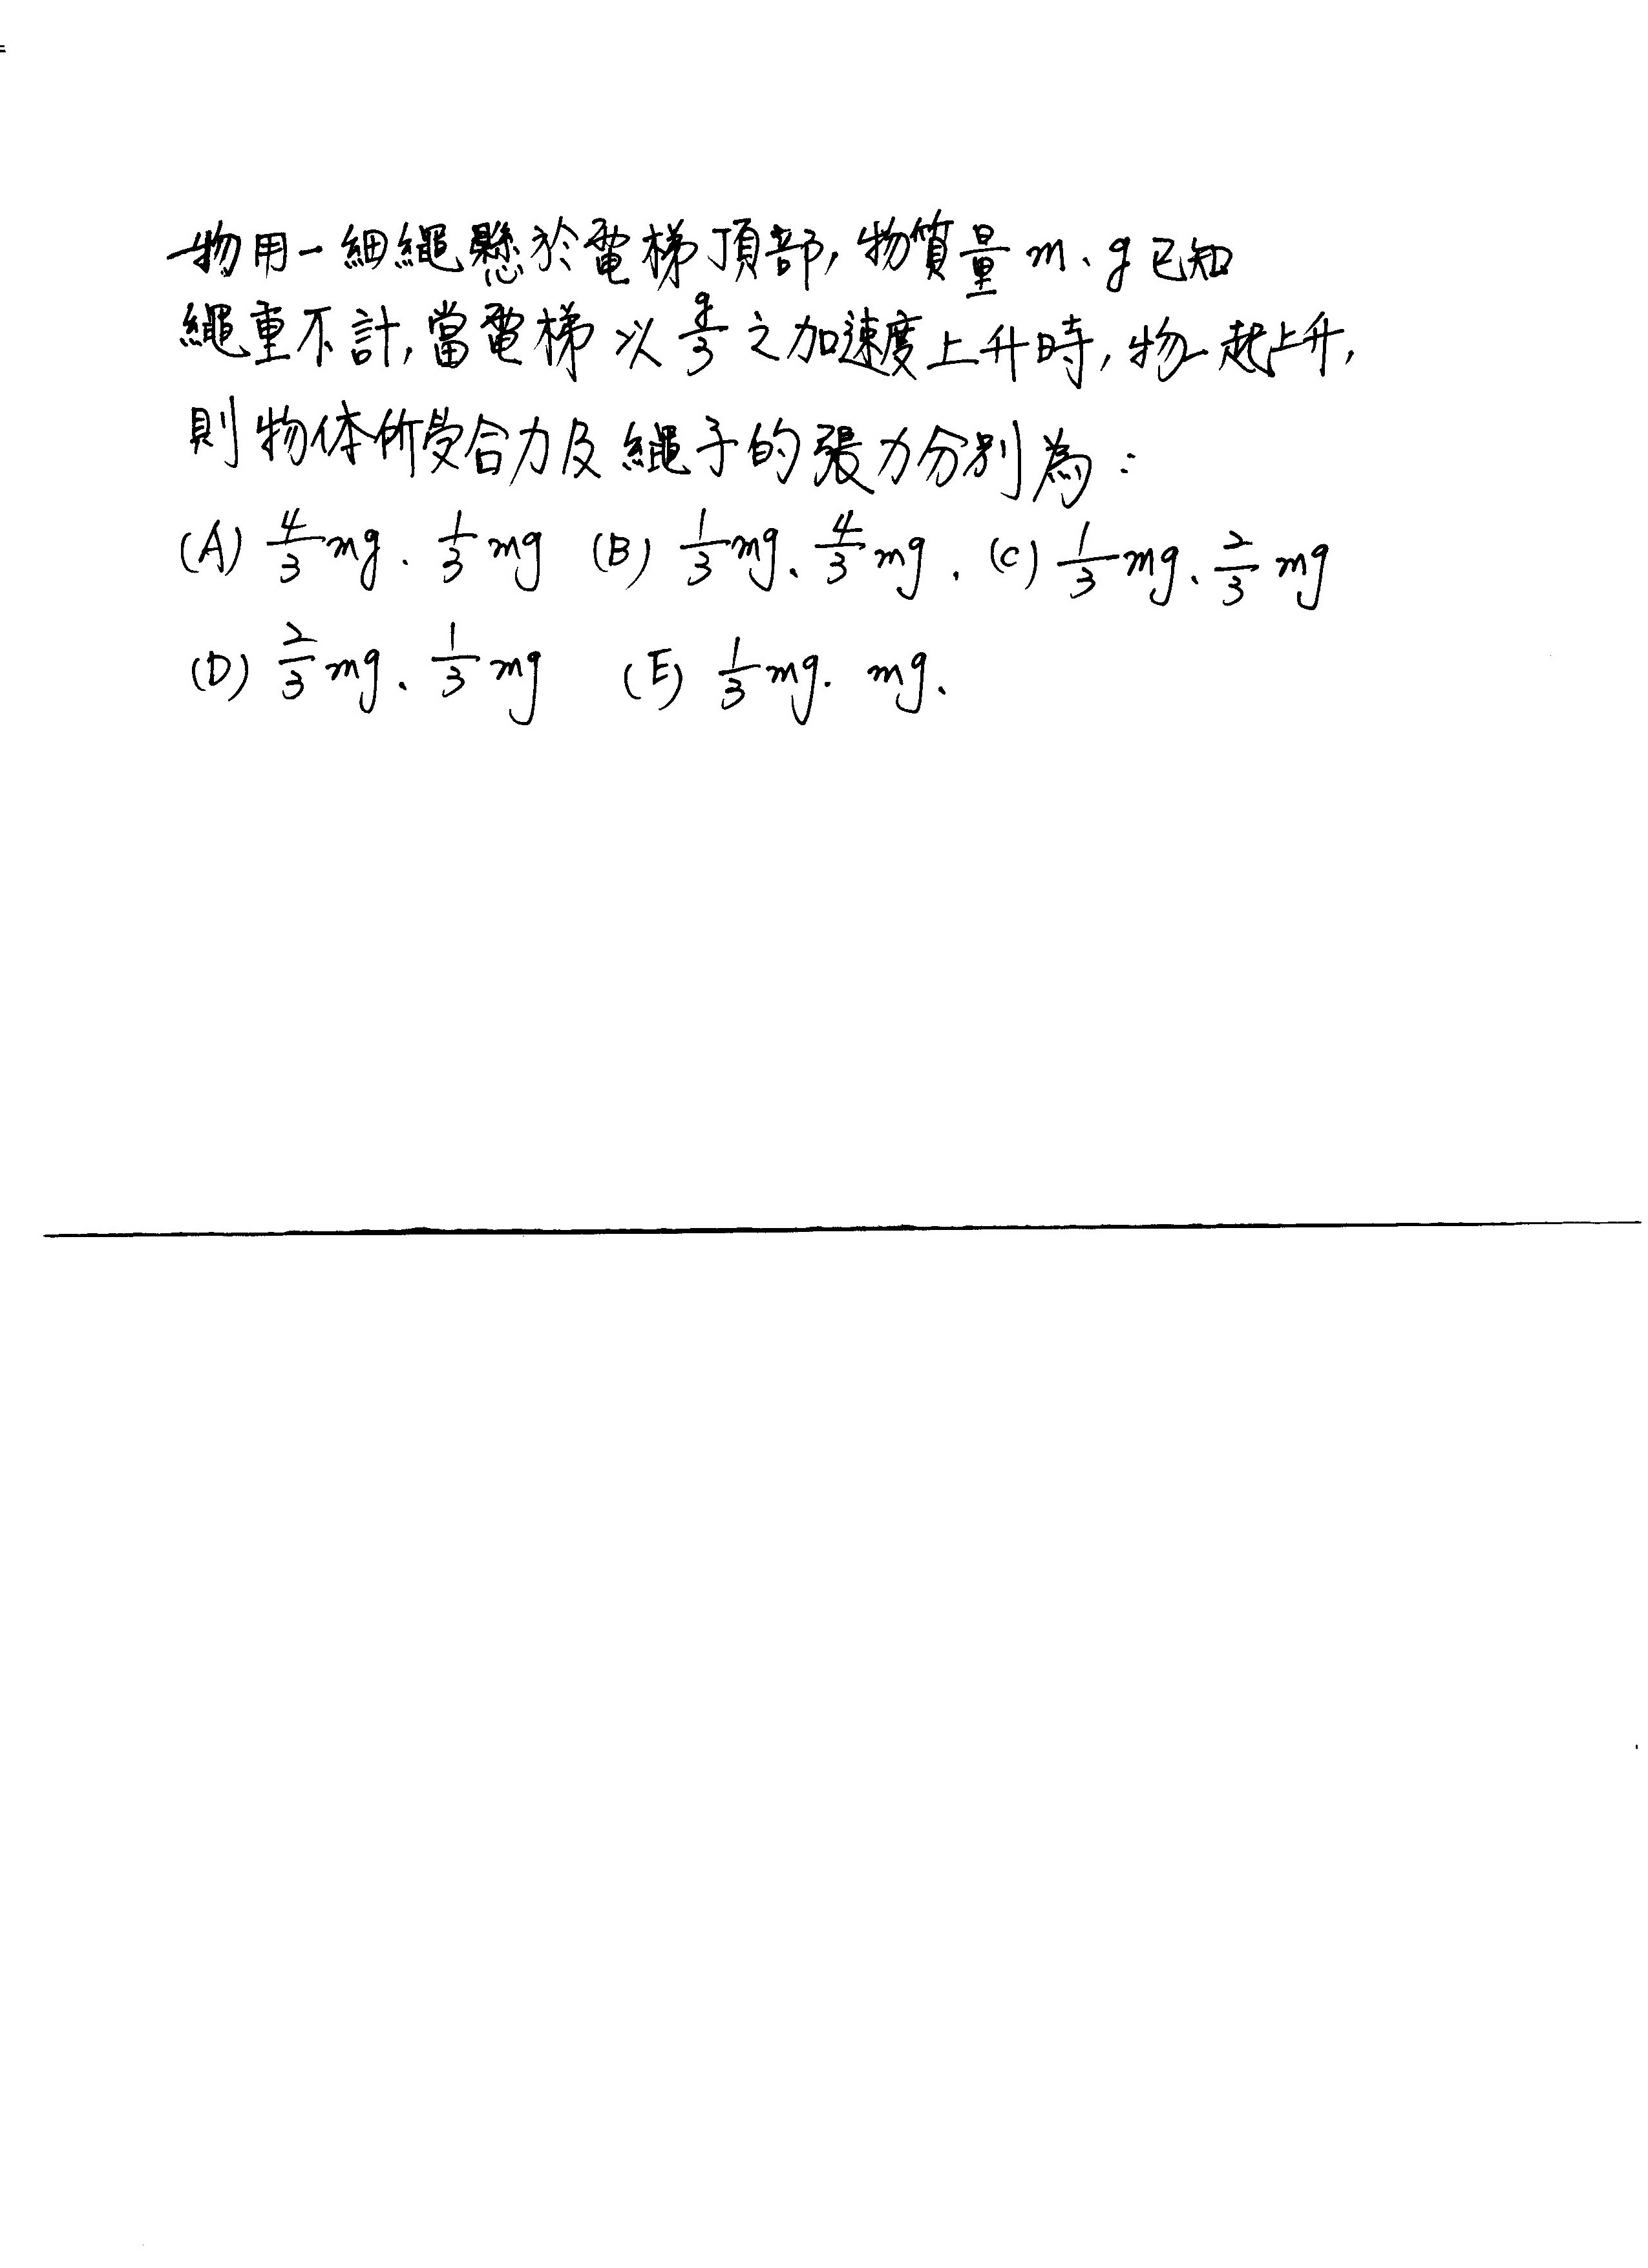 一物用一細繩懸於電梯頂部, 物質量 m、g 已知
繩重不計, 當電梯以 g/3 之加速度上升時, 物一起上升,
則物体所受合力及繩子的張力分別為:
(A) 4/3 mg、1/3 mg (B) 1/3 mg、4/3 mg. (C) 1/3 mg、2/3 mg
(D) 2/3 mg、1/3 mg (E) 1/3 mg. mg、